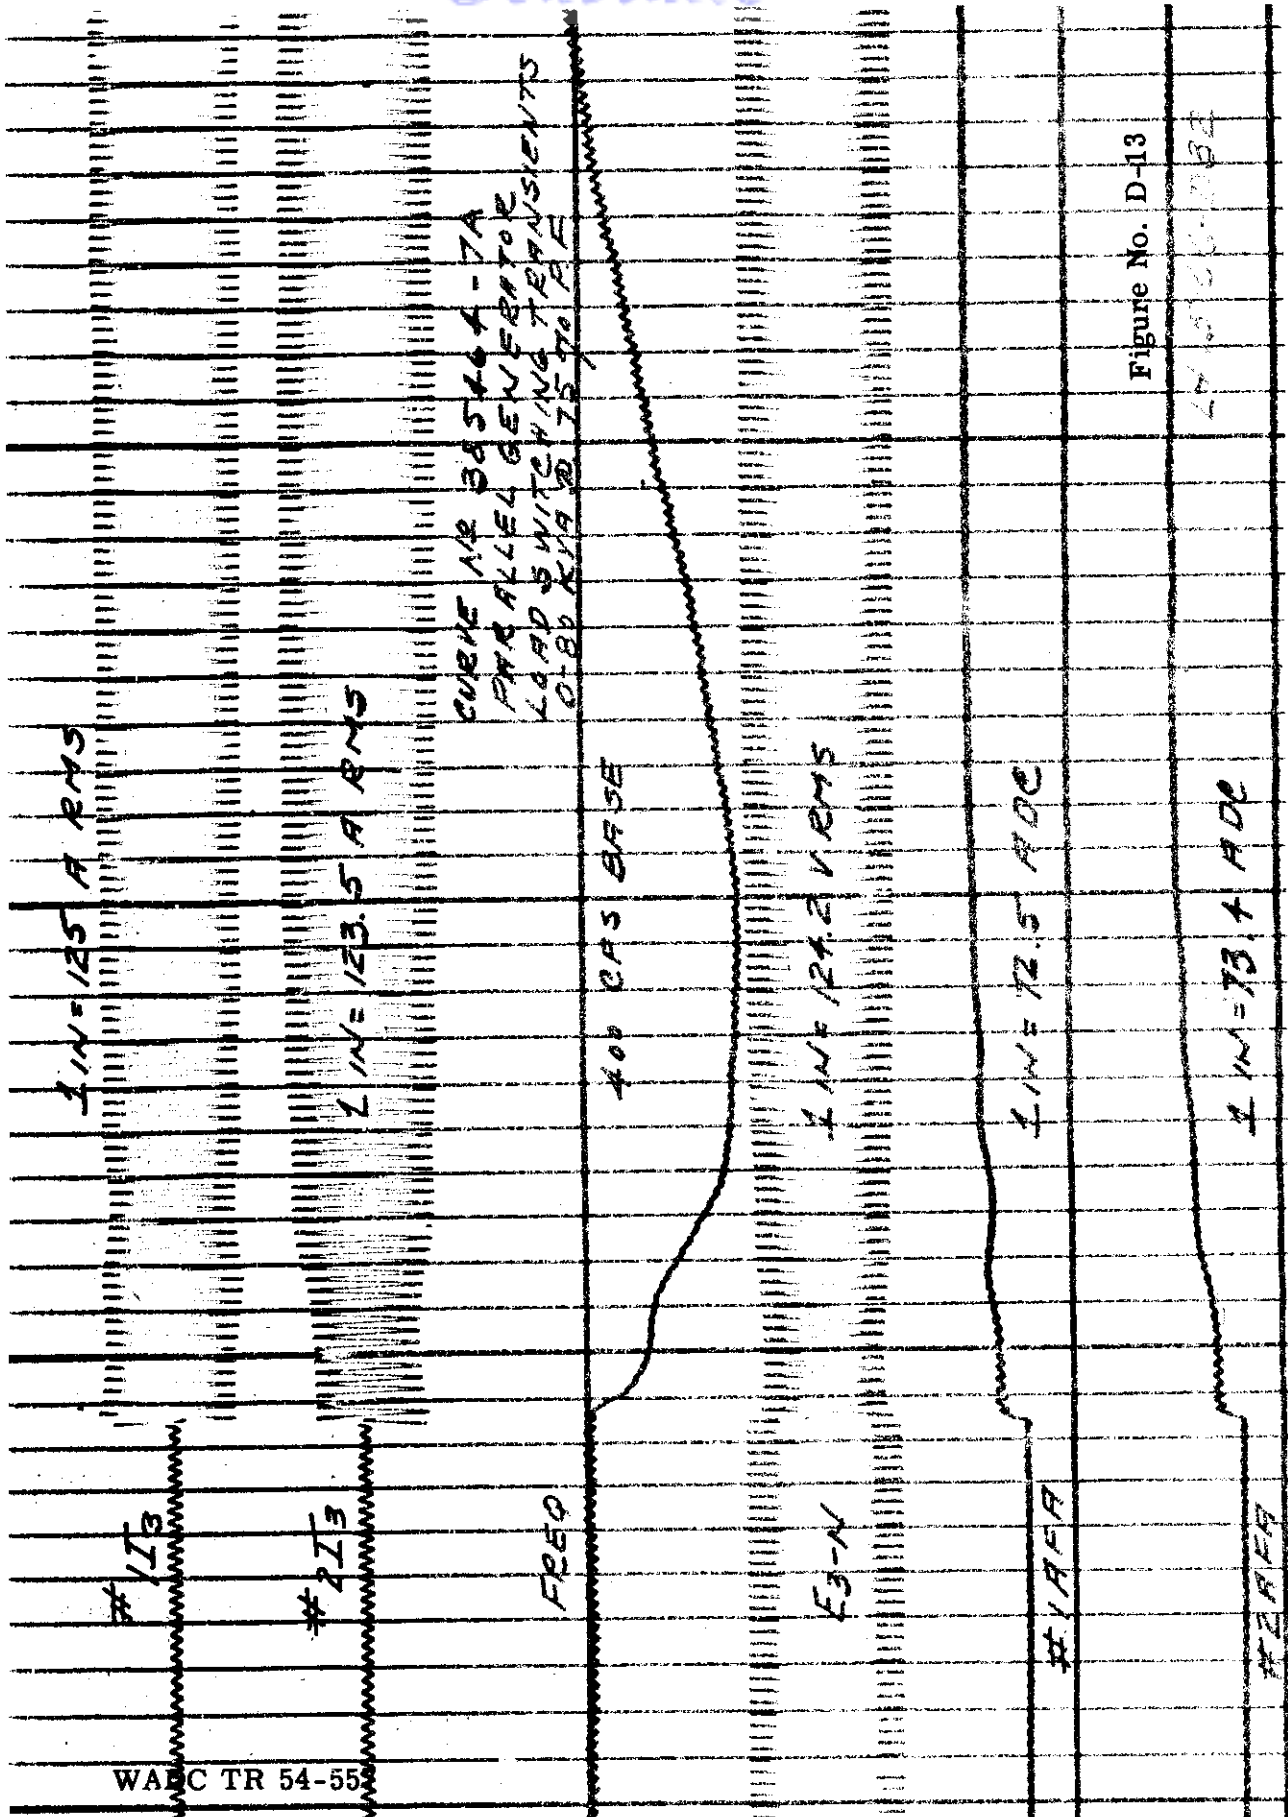 # 1IT3
1 IN = 125 A RMS
# 2IT3
1 IN = 123.5 A RMS
CURVE NR 385464-7A
PARALLEL GENERATOR
LOAD SWITCHING TRANSIENTS
0-80 KVA @ 75% PF
FREQ
400 CPS BASE
E3-N
1 IN = 124.2 V RMS
#1 AFA
1 IN = 72.5 ADC
#2 AFA
1 IN = 73.4 ADC
Figure No. D-13
WADC TR 54-55